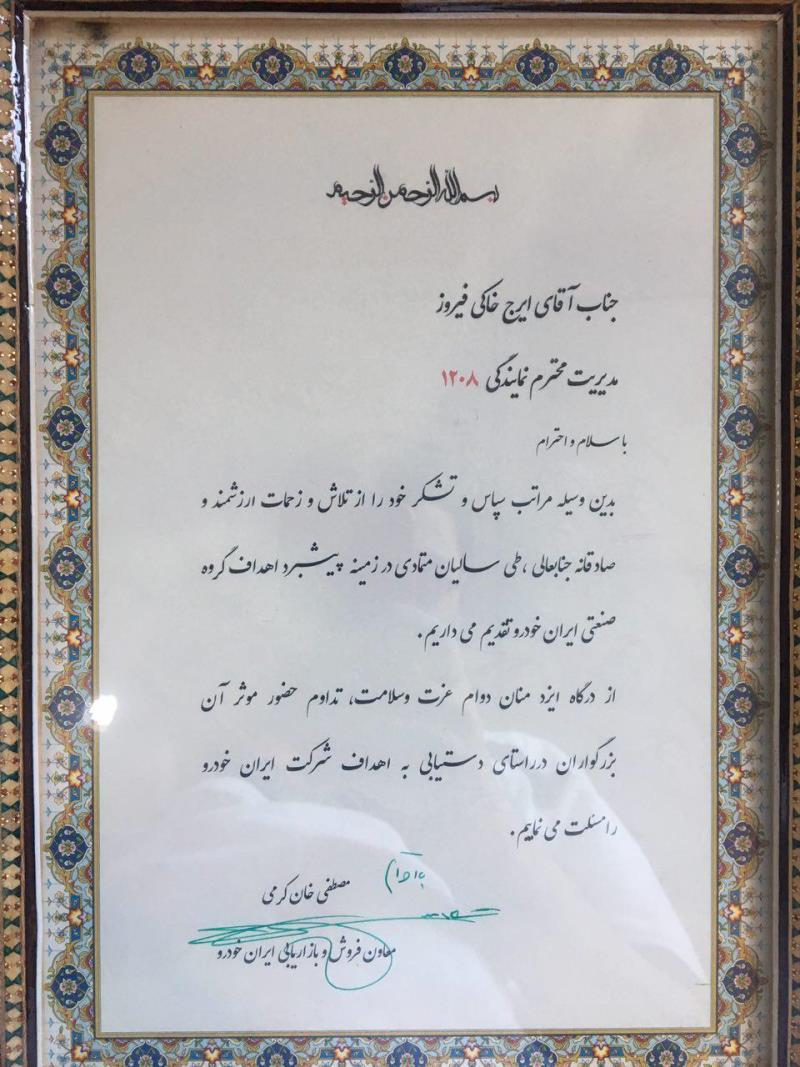 بسم الله الرحمن الرحیم
جناب آقای ایرج خاکی فیروز
مدیریت محترم نمایندگی ۱۲۰۸
با سلام و احترام
بدین وسیله مراتب سپاس و تشکر خود را از تلاش و زحمات ارزشمند و
صادقانه جنابعالی ، طی سالیان متمادی در زمینه پیشبرد اهداف گروه
صنعتی ایران خودرو تقدیم می داریم .
از درگاه ایزد منان دوام عزت وسلامت، تداوم حضور موثر آن
بزرگواران درراستای دستیابی به اهداف شرکت ایران خودرو
را مسئلت می نماییم .
با احترام
مصطفی خان کرمی
معاون فروش و بازاریابی ایران خودرو